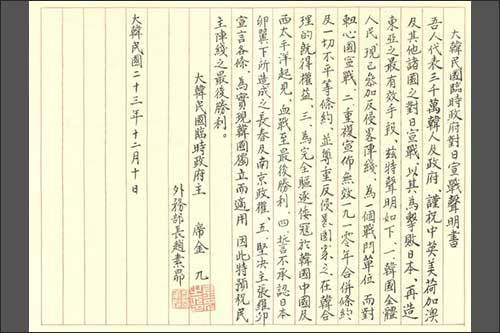 大韓民國臨時政府對日宣戰聲明書
吾人代表三千萬韓人及政府、謹祝中英美荷加澳
及其他諸國之對日宣戰、以其為擊敗日本、再造
東亞之最有效手段、玆特聲明如下、一、韓國全體
人民、現已參加反侵畧陣綫、為一個戰鬥單位、而對
軸心國宣戰、二、重複宣佈無效一九一〇年合併條約、
及一切不平等條約、並尊重反侵畧國家之、在韓合
理的既得權益、三、為完全驅逐倭寇於韓國中國及
西太平洋起見、血戰至最後勝利、四、誓不承認日本
卵翼下所造成之長春及南京政權、五、堅决主張羅邱
宣言各條、為實現韓國獨立而適用、因此特預祝民
主陣綫之最後勝利。
大韓民國臨時政府主 席金 九
外務部長趙素昻
大韓民國二十三年十二月十日